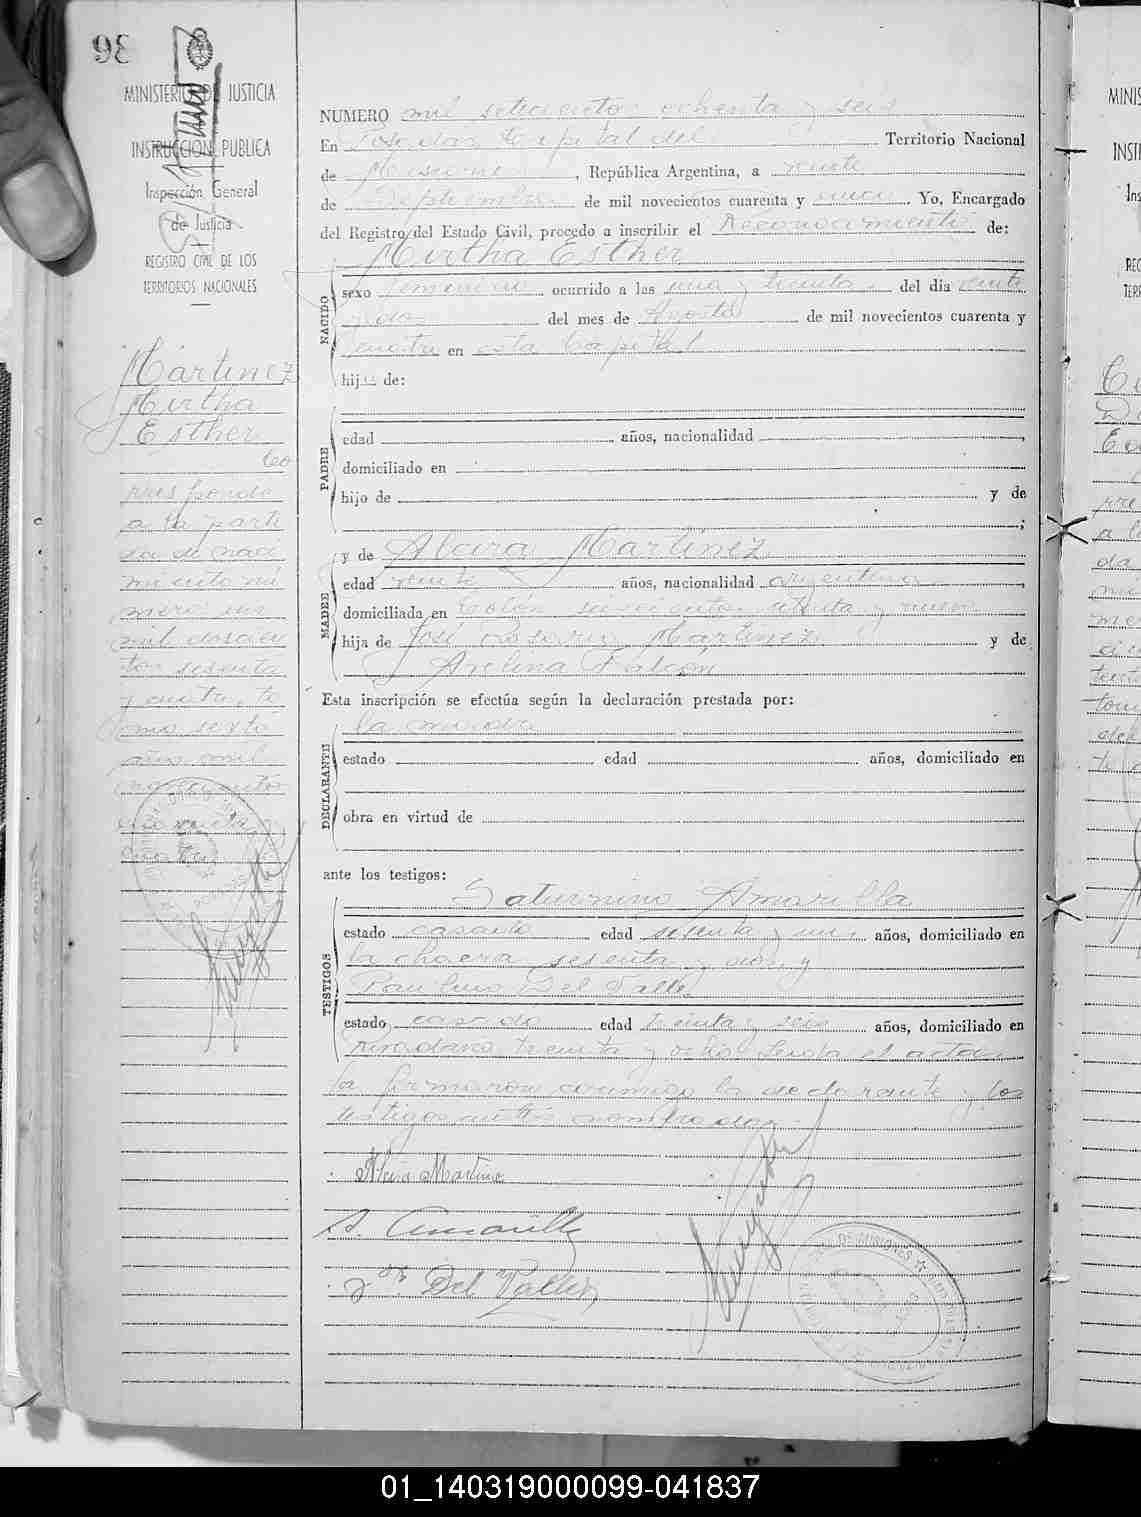 96
MINISTERIO DE JUSTICIA
E
INSTRUCCION PUBLICA
Inspección General
de Justicia
REGISTRO CIVIL DE LOS
TERRITORIOS NACIONALES
Martinez
Mirtha
Esther
Co
rresponde
a la parti
da de naci
miento nú
mero un
mil doscien
tos sesenta
y cuatro, to
mo sexto
año mil
novecientos
cuarenta
cuatro
NUMERO mil setecientos ochenta y seis
En Posadas Capital del Territorio Nacional
de Misiones, República Argentina, a veinte
de Septiembre de mil novecientos cuarenta y cinco. Yo, Encargado
del Registro del Estado Civil, procedo a inscribir el Reconocimiento de:
Mirtha Esther
NACIDO
sexo femenino ocurrido a las una y treinta del dia veinte
y dos del mes de Agosto de mil novecientos cuarenta y
cuatro en esta Capital
hija de:
PADRE
edad años, nacionalidad ,
domiciliado en
hijo de y de
;
MADRE
y de Alcira Martinez
edad veinte años, nacionalidad argentina,
domiciliada en Colón seiscientos setenta y nueve
hija de José Rosario Martinez y de
Avelina Falcon
Esta inscripción se efectúa según la declaración prestada por:
DECLARANTE
la madre
estado edad años, domiciliado en
obra en virtud de
ante los testigos:
TESTIGOS
Saturnino Amarilla
estado casado edad sesenta y un años, domiciliado en
la chacra sesenta y dos y
Paulino Del Valle
estado casado edad treinta y seis años, domiciliado en
rivadavia treinta y ocho. Leida el acta
la firmaron conmigo la declarante y los
testigos antes nombrados
Alcira Martinez
S. Amarilla
Del Valle
01_140319000099-041837